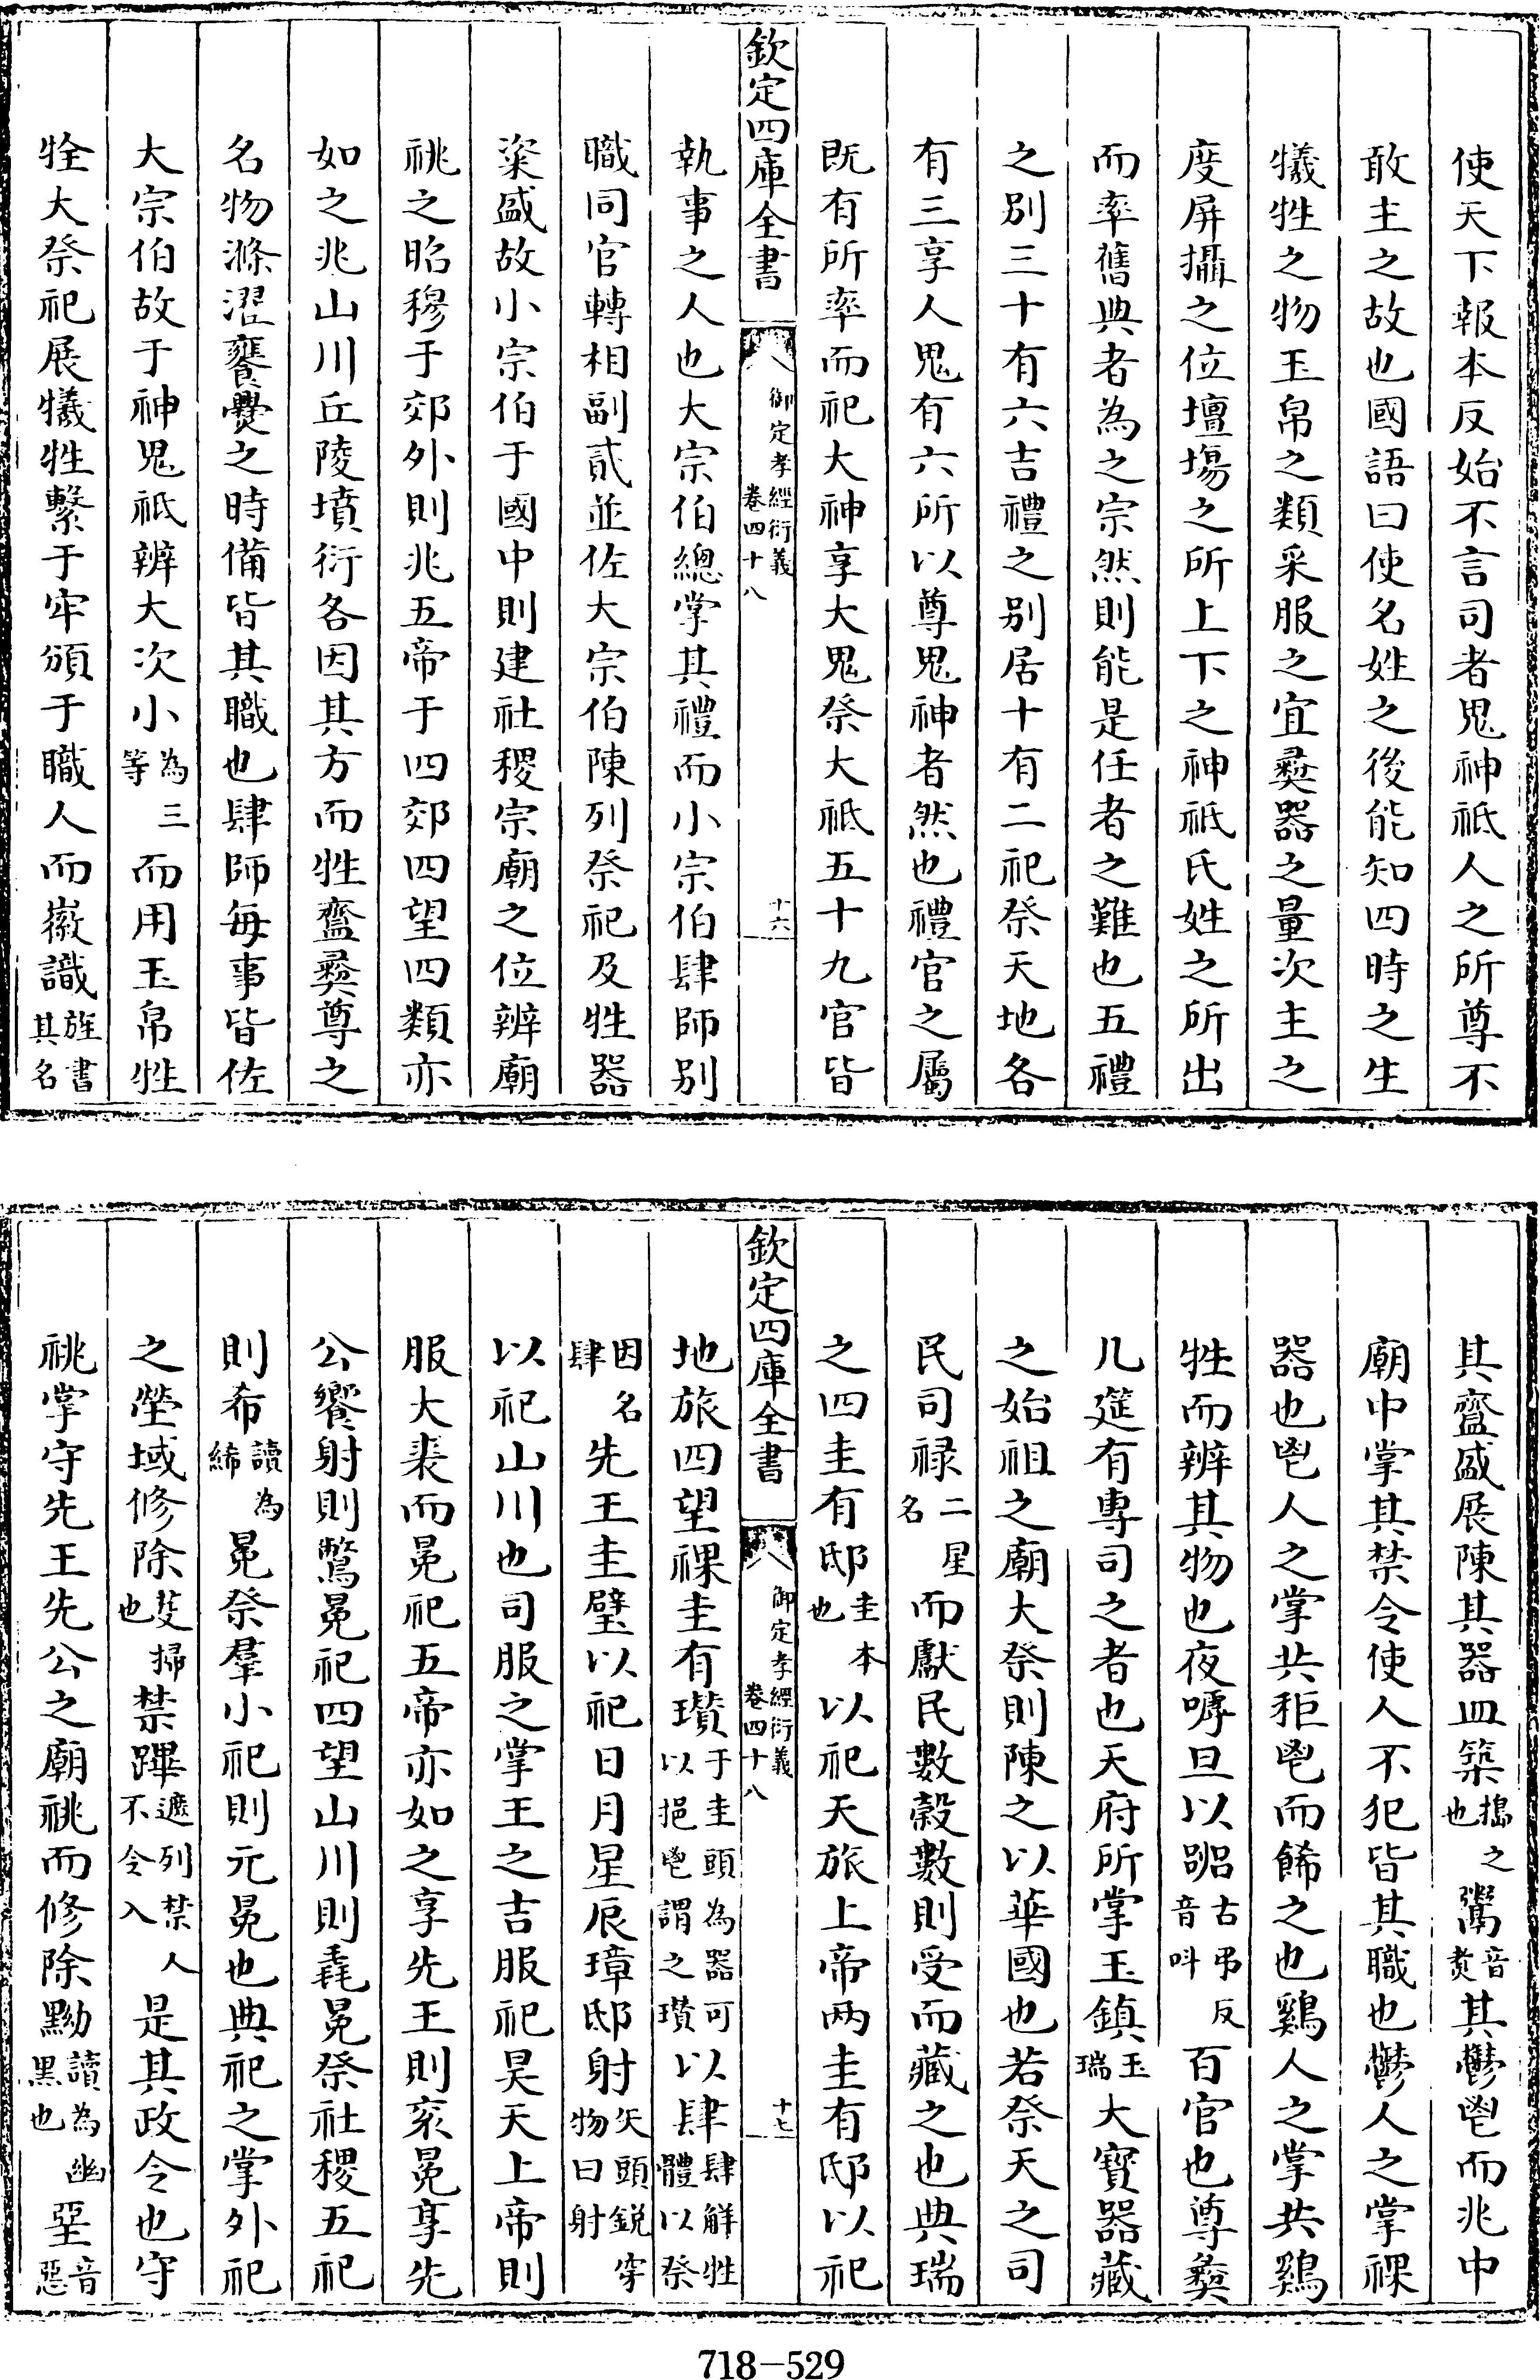 使天下報本反始不言司者鬼神祇人之所尊不
敢主之故也國語曰使名姓之後能知四時之生
犧牲之物玉帛之類采服之宜彛器之量次主之
度屏攝之位壇場之所上下之神祇氏姓之所出
而率舊典者為之宗然則能是任者之難也五禮
之别三十有六吉禮之别居十有二祀祭天地各
有三享人鬼有六所以尊鬼神者然也禮官之屬
既有所率而祀大神享大鬼祭大祗五十九官皆
欽定四庫全書 御定孝經衍義 卷四十八 十六
執事之人也大宗伯總掌其禮而小宗伯肆師别
職同官轉相副貳並佐大宗伯陳列祭祀及牲器
粢盛故小宗伯于國中則建社稷宗廟之位辨廟
祧之昭穆于郊外則兆五帝于四郊四望四類亦
如之兆山川丘陵墳衍各因其方而牲齍彛尊之
名物滌濯饔爨之時備皆其職也肆師每事皆佐
大宗伯故于神鬼祇辨大次小為三等而用玉帛牲
牷大祭祀展犧牲繫于牢頒于職人而徽識旌書其名
其齍盛展陳其器皿築搗之也鬻音煑其鬱鬯而兆中
廟中掌其禁令使人不犯皆其職也鬱人之掌祼
器也鬯人之掌共秬鬯而餙之也鷄人之掌共鷄
牲而辨其物也夜嘑旦以嘂古弔反音叫百官也尊彛
几筵有專司之者也天府所掌玉鎮玉瑞大寶器藏
之始祖之廟大祭則陳之以華國也若祭天之司
民司禄二星名而獻民數穀數則受而藏之也典瑞
之四圭有邸圭本也以祀天旅上帝两圭有邸以祀
欽定四庫全書 御定孝經衍義 卷四十八 十七
地旅四望祼圭有瓚于圭頭為器可以挹鬯謂之瓚以肆肆解牲體以祭
因名肆先王圭璧以祀日月星辰璋邸射矢頭鋭穿物曰射
以祀山川也司服之掌王之吉服祀昊天上帝則
服大裘而冕祀五帝亦如之享先王則衮冕享先
公饗射則鷩冕祀四望山川則毳冕祭社稷五祀
則希讀為絺冕祭羣小祀則元冕也典祀之掌外祀
之塋域修除芟掃也禁蹕遮列禁人不令入是其政令也守
祧掌守先王先公之廟祧而修除黝讀為幽黑也堊音惡
718-529